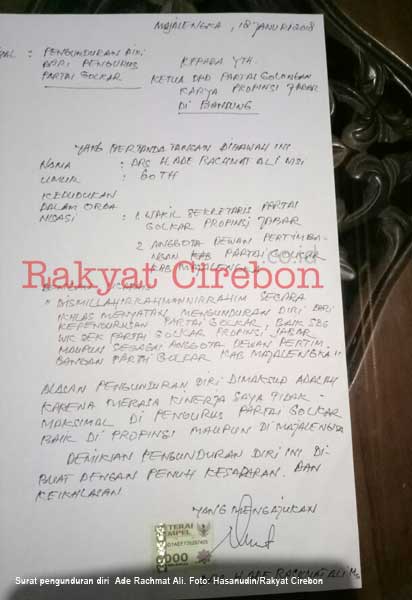 MAJALENGKA, 18 JANUARI 2018
PENGUNDURAN DIRI
DARI PENGURUS
PARTAI GOLKAR
KEPADA YTH.
KETUA DPD PARTAI GOLONGAN
KARYA PROPINSI JABAR
DI BANDUNG
YANG BERTANDA TANGAN DIBAWAH INI
NAMA : DRS H. ADE RACHMAT ALI MSI
UMUR : 60 TH
KEDUDUKAN
DALAM ORGA
NISASI : 1. WAKIL SEKRETARIS PARTAI
GOLKAR PROPINSI JABAR
2. ANGGOTA DEWAN PERTIMBA-
NGAN KAB PARTAI GOLKAR
KAB MAJALENGKA
.co.id
Rakyat Cirebon
" BISMILLAHIRAHMANNIRRAHIM SECARA
IKHLAS MENYATAKAN MENGUNDURAN DIRI DARI
KEPENGURUSAN PARTAI GOLKAR, BAIK SBG
WK SEK PARTAI GOLKAR PROPINSI JABAR
MAUPUN SEBAGAI ANGGOTA DEWAN PERTIM
BANGAN PARTAI GOLKAR KAB MAJALENGKA"
ALASAN PENGUNDURAN DIRI DIMAKSUD ADALAH
KARENA MERASA KINERJA SAYA TIDAK -
MAKSIMAL DI PENGURUS PARTAI GOLKAR
BAIK DI PROPINSI MAUPUN DI MAJALENGKA
DEMIKIAN PENGUNDURAN DIRI INI DI-
BUAT DENGAN PENUH KESADARAN DAN
KEIKHLASAN
YANG MENGAJUKAN
METERAI
TEMPEL
000
H. ADE RACHMAT ALI MSi
Surat pengunduran diri Ade Rachmat Ali. Foto: Hasanudin/Rakyat Cirebon